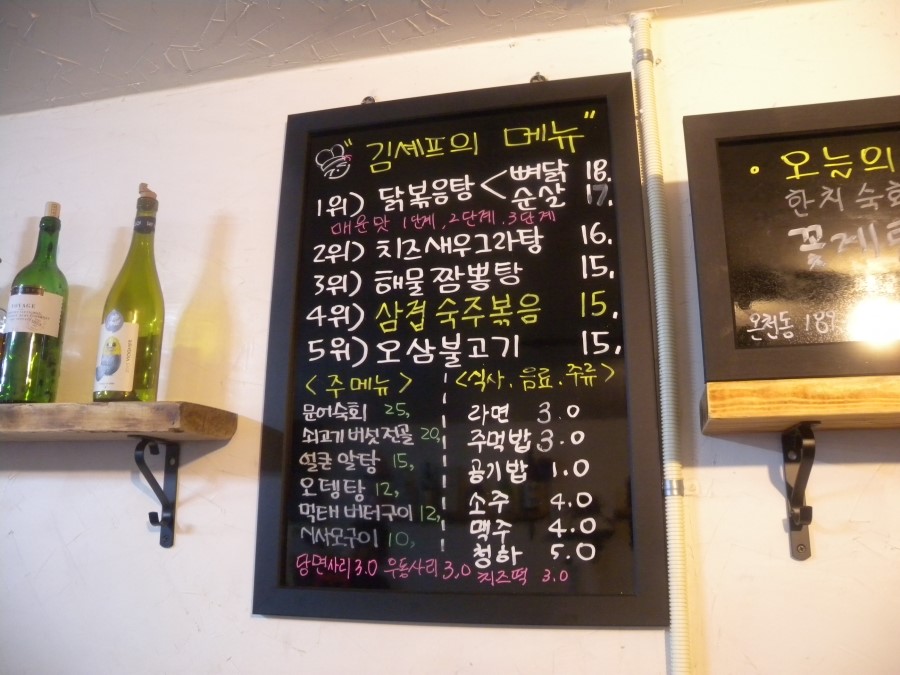 "김셰프의 메뉴"
1위) 닭볶음탕 < 뼈닭 18.
순살 17.
매운맛 1단계, 2단계. 3단계
2위) 치즈새우그라탕 16.
3위) 해물짬뽕탕 15.
4위) 삼겹숙주볶음 15.
5위) 오삼불고기 15.
<주메뉴>
문어숙회 25,
쇠고기버섯전골 20,
얼큰알탕 15,
오뎅탕 12,
먹태버터구이 12,
시사모구이 10,
<식사. 음료. 주류>
라면 3.0
주먹밥 3.0
공기밥 1.0
소주 4.0
맥주 4.0
청하 5.0
당면사리 3.0 우동사리 3.0 치즈떡 3.0
• 오늘의
한치숙회
온천동 189